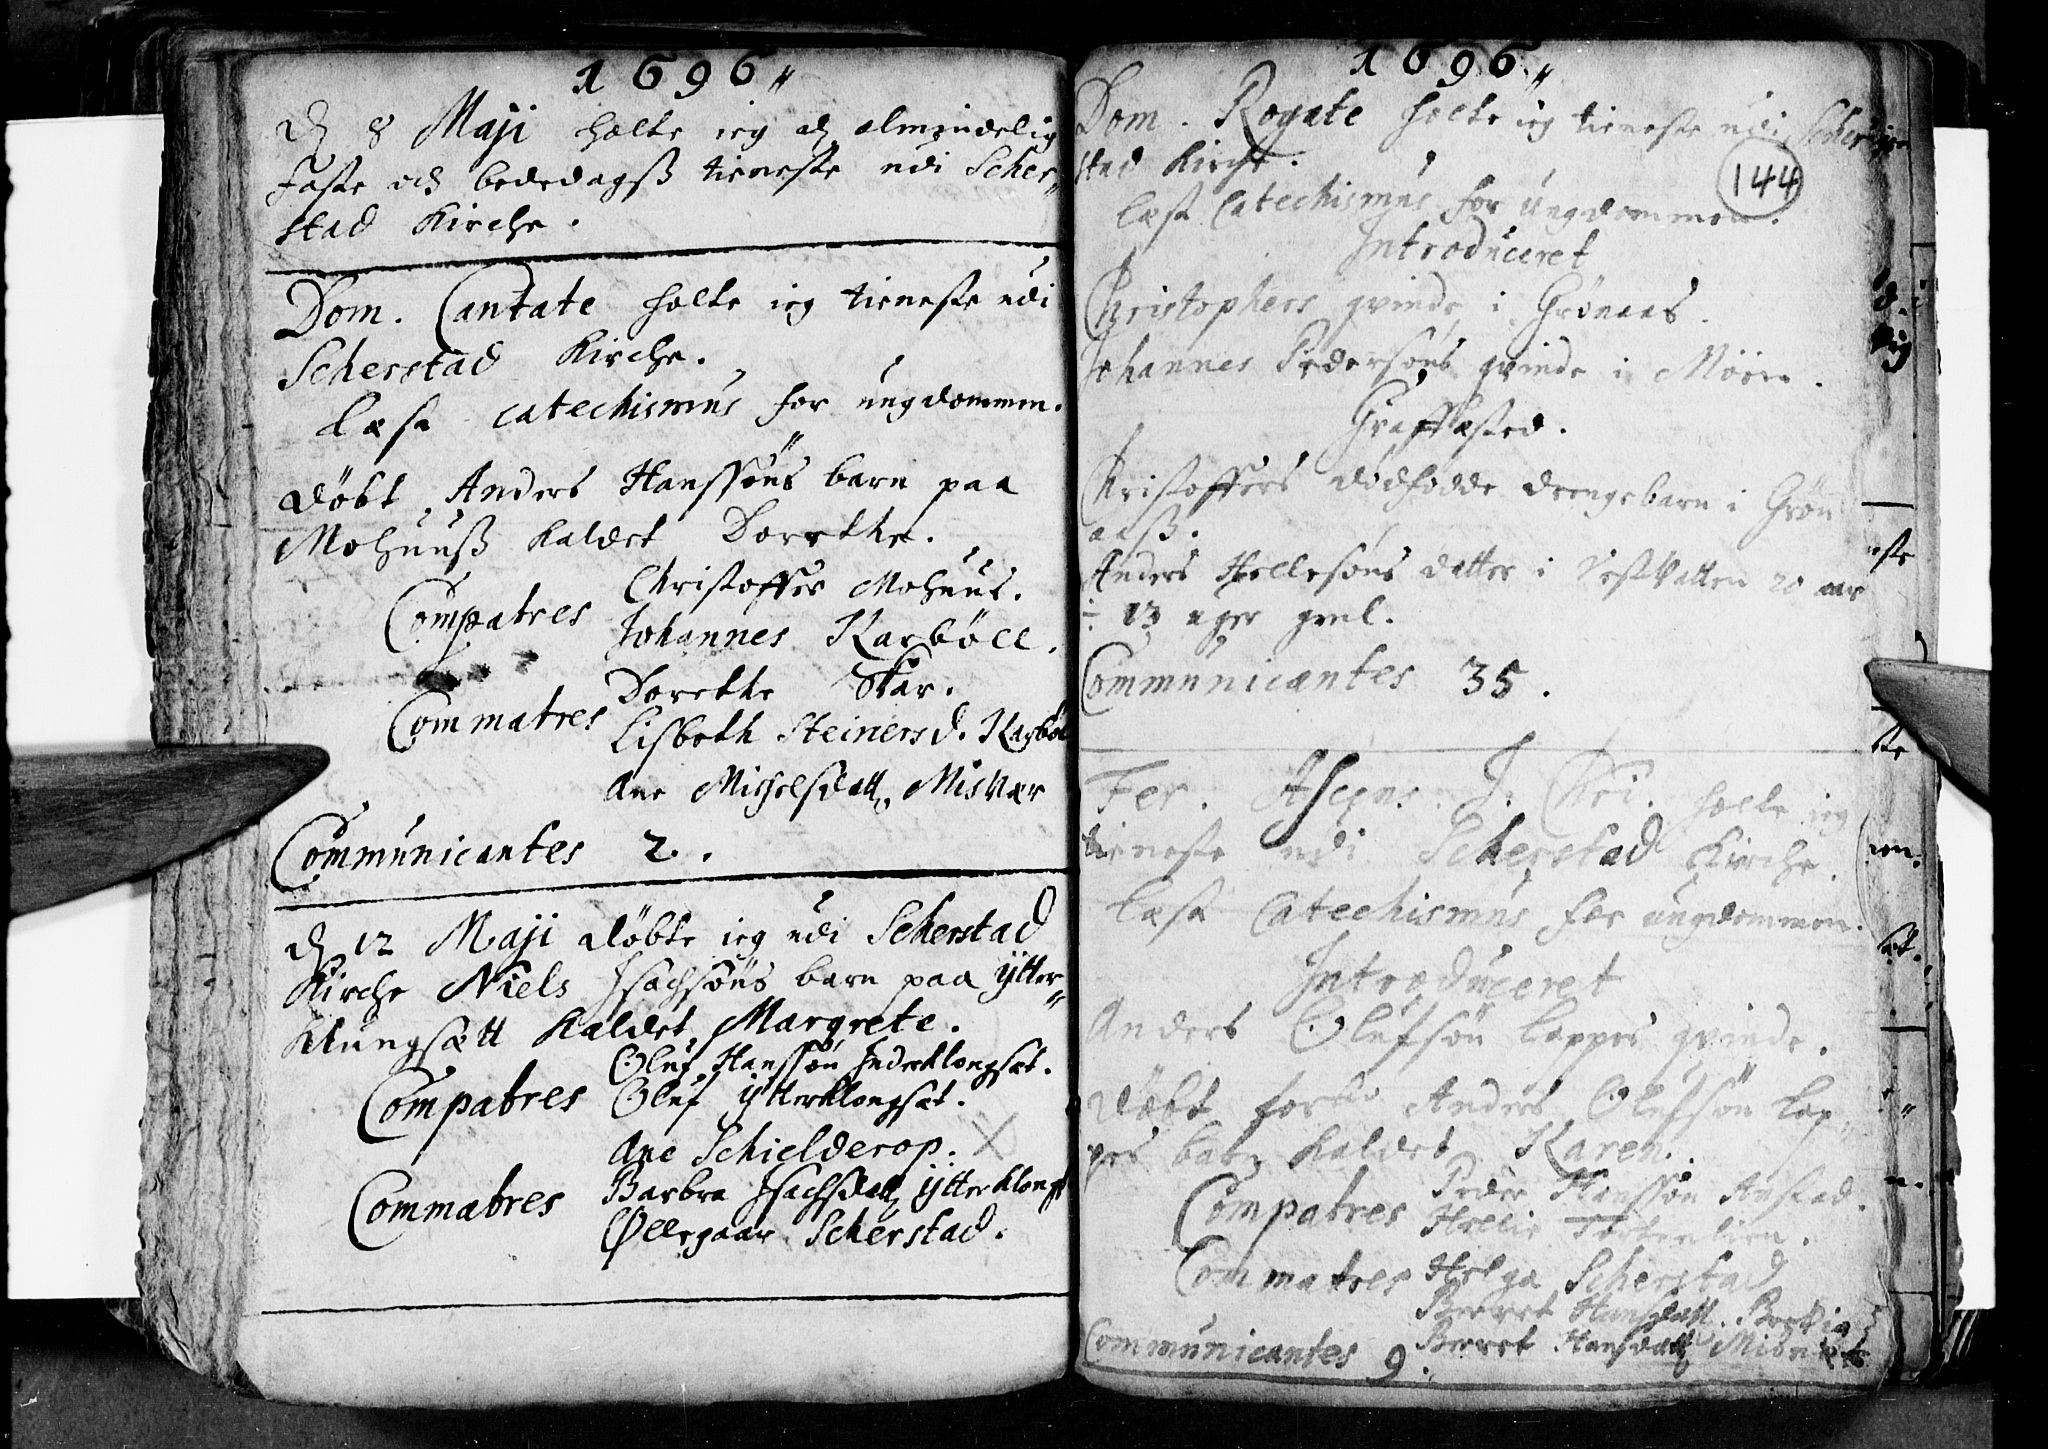 1696
d 8 Maji holte ieg d almindelig
faste och bededagsß tieneste udi Scher-
stad Kirche.
Dom. Cantate holte ieg tieneste udi
Scherstad Kirche.
Læste catechismus for ungdommen.
Døbt Anders Hanssøns barn paa
Mohuuß kaldet Dorethe.
Compatres Christoffer Mohuus.
Johannes Karbøll.
Dorethe Skar.
Commatres Lisbeth Steinersd. Karbøl
Ane Michelsdatt. Misvær
Communicantes 2.
d 12 Maji døbte ieg udi Scherstad
Kirche Niels Isachsøns barn paa ÿtter-
Klungsætt kaldet Margrete.
Oluf Hanssøn Inderklongset.
Compatres Oluf ÿtterklongset.
Ane Schielderop.
Commatres Barbra Isachsdatt ÿtterklongs
Øllegaar Scherstad.
1696
144
Dom. Rogate holte ieg tieneste udi Scher-
stad Kirche.
Læst Catechismus for ungdommen.
Introduceret
Christophers qvinde i Grønaas.
Johannes Pedersøns qvinde i Møen.
Graffæsted.
Kristoffers dødfødde drengebarn i Grøn
aaß.
Anders Hellesøns datter i Vestvatten 20 aar
÷ 13 uger gml.
Communicantes 35.
Fer. Ascens. J. Chri. holte ieg
tieneste udi Scherstad Kirche.
Læst Catechismus for ungdommen.
Introduceret
Anders Olufsøn Lappes qvinde.
Døbt for Anders Olufsøn Lap-
pes barn kaldet Karen.
Peder Hanssøn Anstad.
Compatres Helie
Commatres Helga Scherstad
Berret Hansdatt.
Communicantes 9. Berret Hansdatt